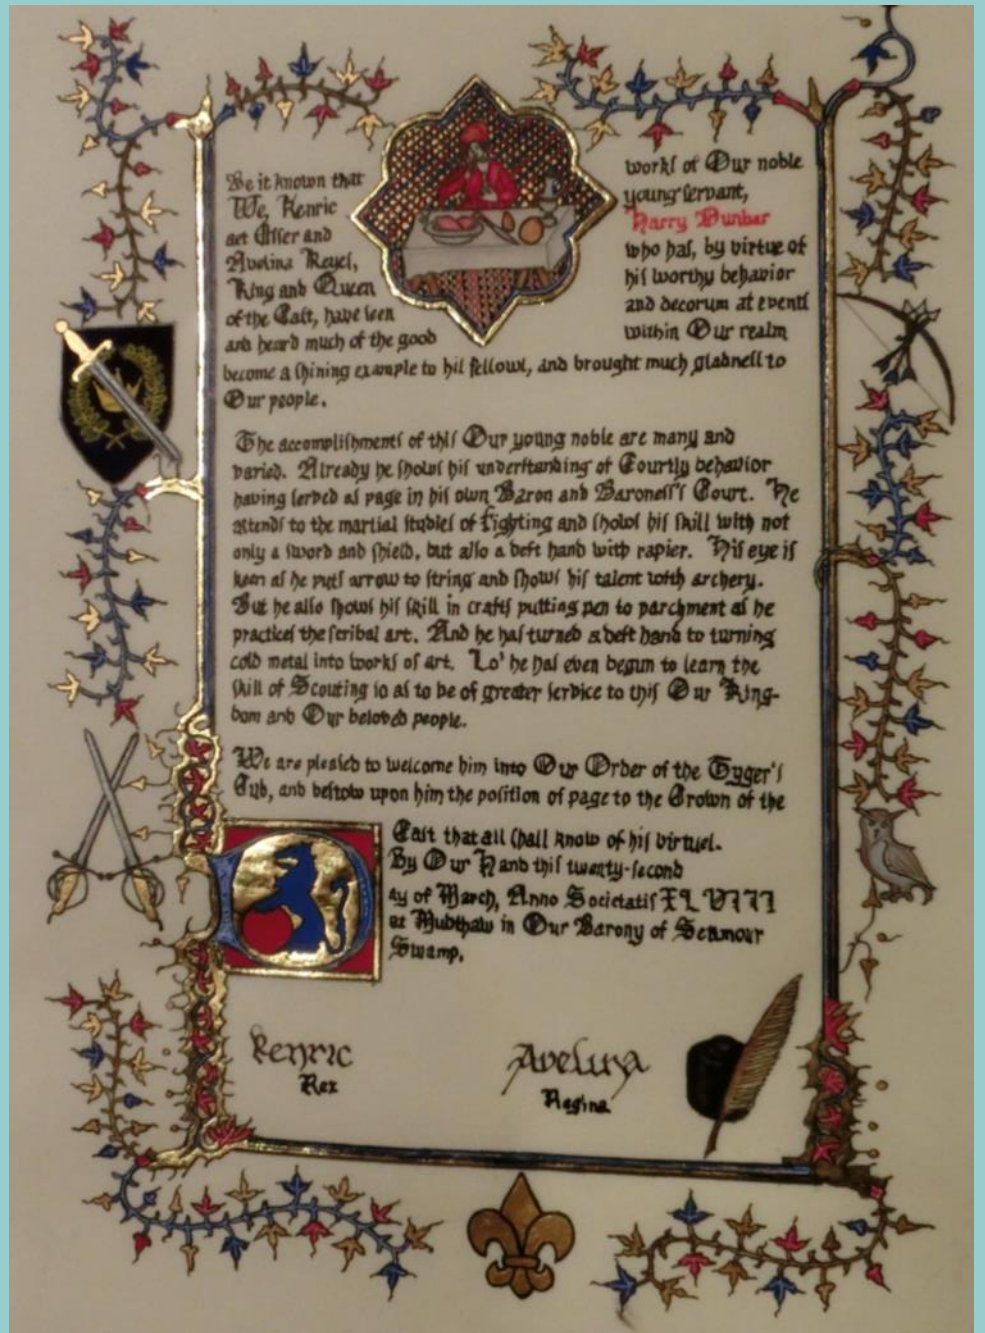 Be it known that
We, Kenric
aet Essex and
Avelina Keyes,
King and Queen
of the East, have seen
and heard much of the good
works of Our noble
young servant,
Harry Dunbar
who has, by virtue of
his worthy behavior
and decorum at events
within Our realm
become a shining example to his fellows, and brought much gladness to
Our people.
The accomplishments of this Our young noble are many and
varied. Already he shows his understanding of Courtly behavior
having served as page in his own Baron and Baroness's Court. He
attends to the martial studies of fighting and shows his skill with not
only a sword and shield, but also a deft hand with rapier. His eye is
keen as he puts arrow to string and shows his talent with archery.
But he also shows his skill in crafts putting pen to parchment as he
practices the scribal art. And he has turned a deft hand to turning
cold metal into works of art. Lo' he has even begun to learn the
skill of Scouting so as to be of greater service to this Our King-
dom and Our beloved people.
We are pleased to welcome him into Our Order of the Tyger's
Cub, and bestow upon him the position of page to the Crown of the
East that all shall know of his virtues.
By Our Hand this twenty-second
Day of March, Anno Societatis XL VIII
at Mudthaw in Our Barony of Settmour
Swamp.
Kenric
Rex
Avelina
Regina